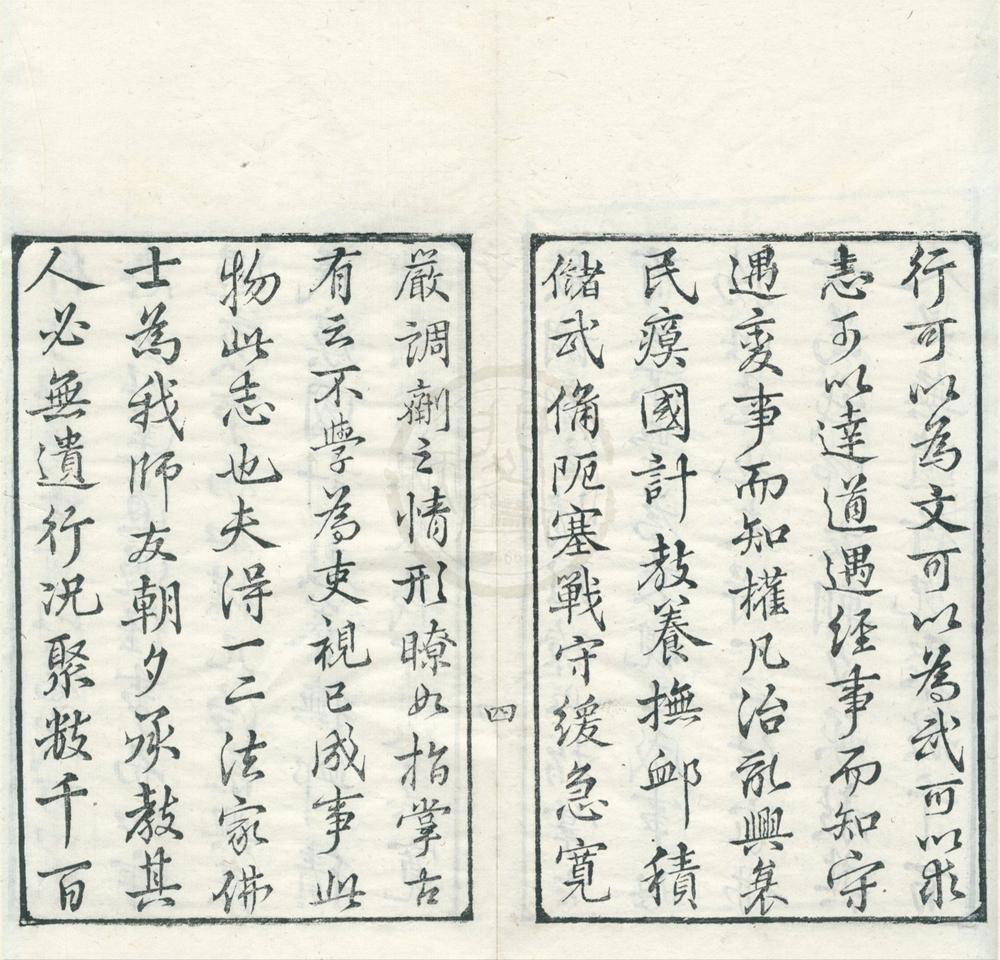 行可以為文可以為武可以求
志可以達道遇經事而知守
遇變事而知權凡治亂興衰
民瘼國計教養撫卹積
儲武備阨塞戰守緩急寬
四
嚴調劑之情形瞭如指掌古
有云不學為吏視已成事此
物此志也夫得一二法家拂
士為我師友朝夕承教其
人必無遺行況聚數千百